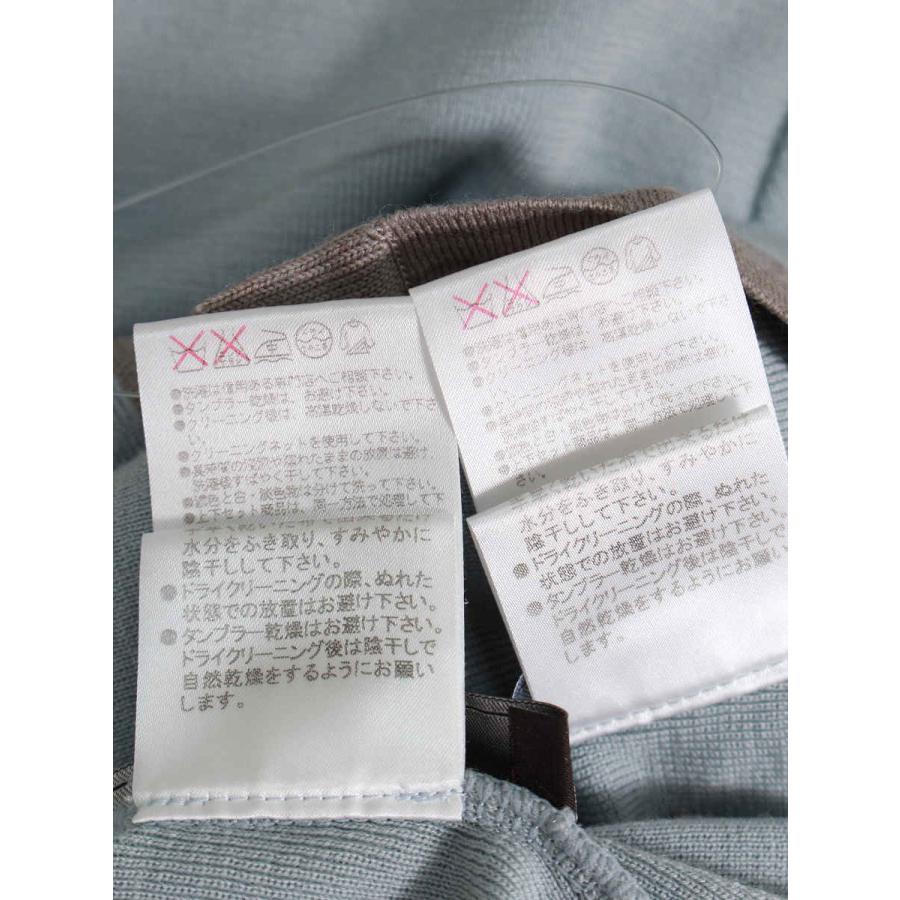 ●洗濯は信用ある専門店へご相談下さい。
●タンブラー乾燥は、お避け下さい。
●クリーニング様は、高温乾燥しないで下さ
い。
●クリーニングネットを使用して下さい。
洗濯後すばやく干して下さい。
●濃色と白・淡色物は分けて洗って下さい。
●上下セット商品は、同一方法で処理して下
水分をふき取り、すみやかに
陰干しして下さい。
●ドライクリーニングの際、ぬれた
状態での放置はお避け下さい。
●タンブラー乾燥はお避け下さい。
ドライクリーニング後は陰干しで
自然乾燥をするようにお願い
します。
●洗濯は信用ある専門店へご相談下さい。
●タンブラー乾燥は、お避け下さい。
●クリーニング様は、高温乾燥しないで下さ
い。
●クリーニングネットを使用して下さい。
水分をふき取り、すみやかに
陰干しして下さい。
●ドライクリーニングの際、ぬれた
状態での放置はお避け下さい。
●タンブラー乾燥はお避け下さい。
ドライクリーニング後は陰干しで
自然乾燥をするようにお願い
します。